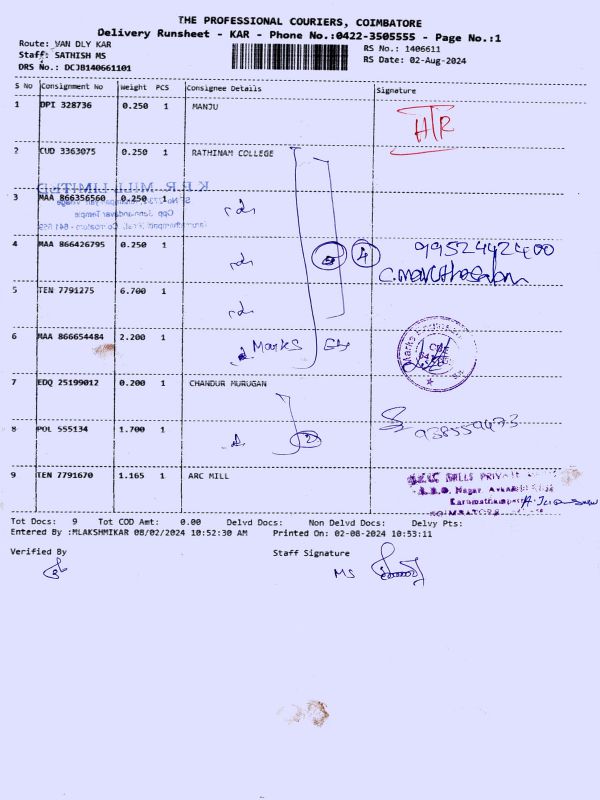 THE PROFESSIONAL COURIERS, COIMBATORE
Delivery Runsheet - KAR - Phone No.:0422-3505555 - Page No.:1
Route: VAN DLY KAR
RS No.: 1406611
Staff: SATHISH MS
RS Date: 02-Aug-2024
DRS No.: DCJB140661101
S No Consignment No Weight PCS Consignee Details Signature
1 DPI 328736 0.250 1 MANJU
HTR
2 CUD 3363075 0.250 1 RATHINAM COLLEGE
K P R MILL LIMITED
3 MAA 866356560 0.250 1
4 MAA 866426795 0.250 1 4 9952442400
5 TEN 7791275 6.700 1
6 MAA 866654484 2.200 1 Marks
7 EDQ 25199012 0.200 1 CHANDUR MURUGAN
8 POL 555134 1.700 1 2
9 TEN 7791670 1.165 1 ARC MILL
MILLS PRIVATE
Nagar,
Karumathampatti
COIMBATORE
Tot Docs: 9 Tot COD Amt: 0.00 Delvd Docs: Non Delvd Docs: Delvy Pts:
Entered By :MLAKSHMIKAR 08/02/2024 10:52:30 AM Printed On: 02-08-2024 10:53:11
Verified By Staff Signature
MS